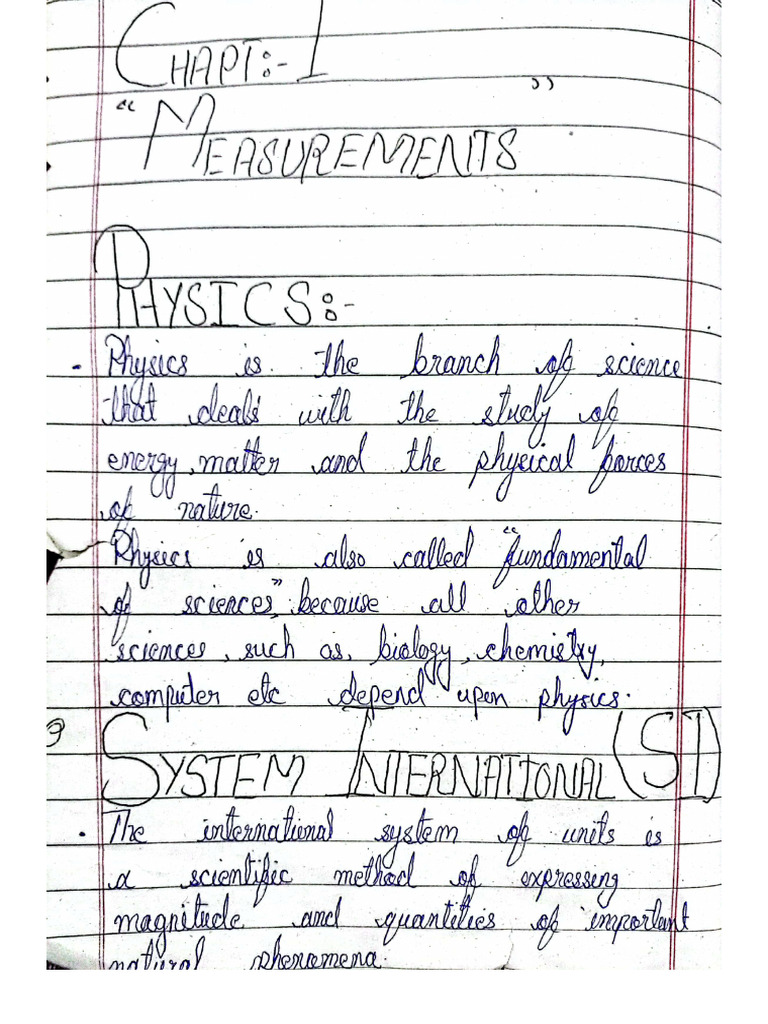 CHAPT:- 1
“MEASUREMENTS”
PHYSICS:-
Physics is the branch of science
that deals with the study of
energy, matter and the physical forces
of nature.
Physics is also called “fundamental
of sciences”, because all other
sciences, such as, biology, chemistry,
computer etc depend upon physics.
SYSTEM INTERNATIONAL (SI)
The international system of units is
a scientific method of expressing
magnitude and quantities of important
natural phenomena.